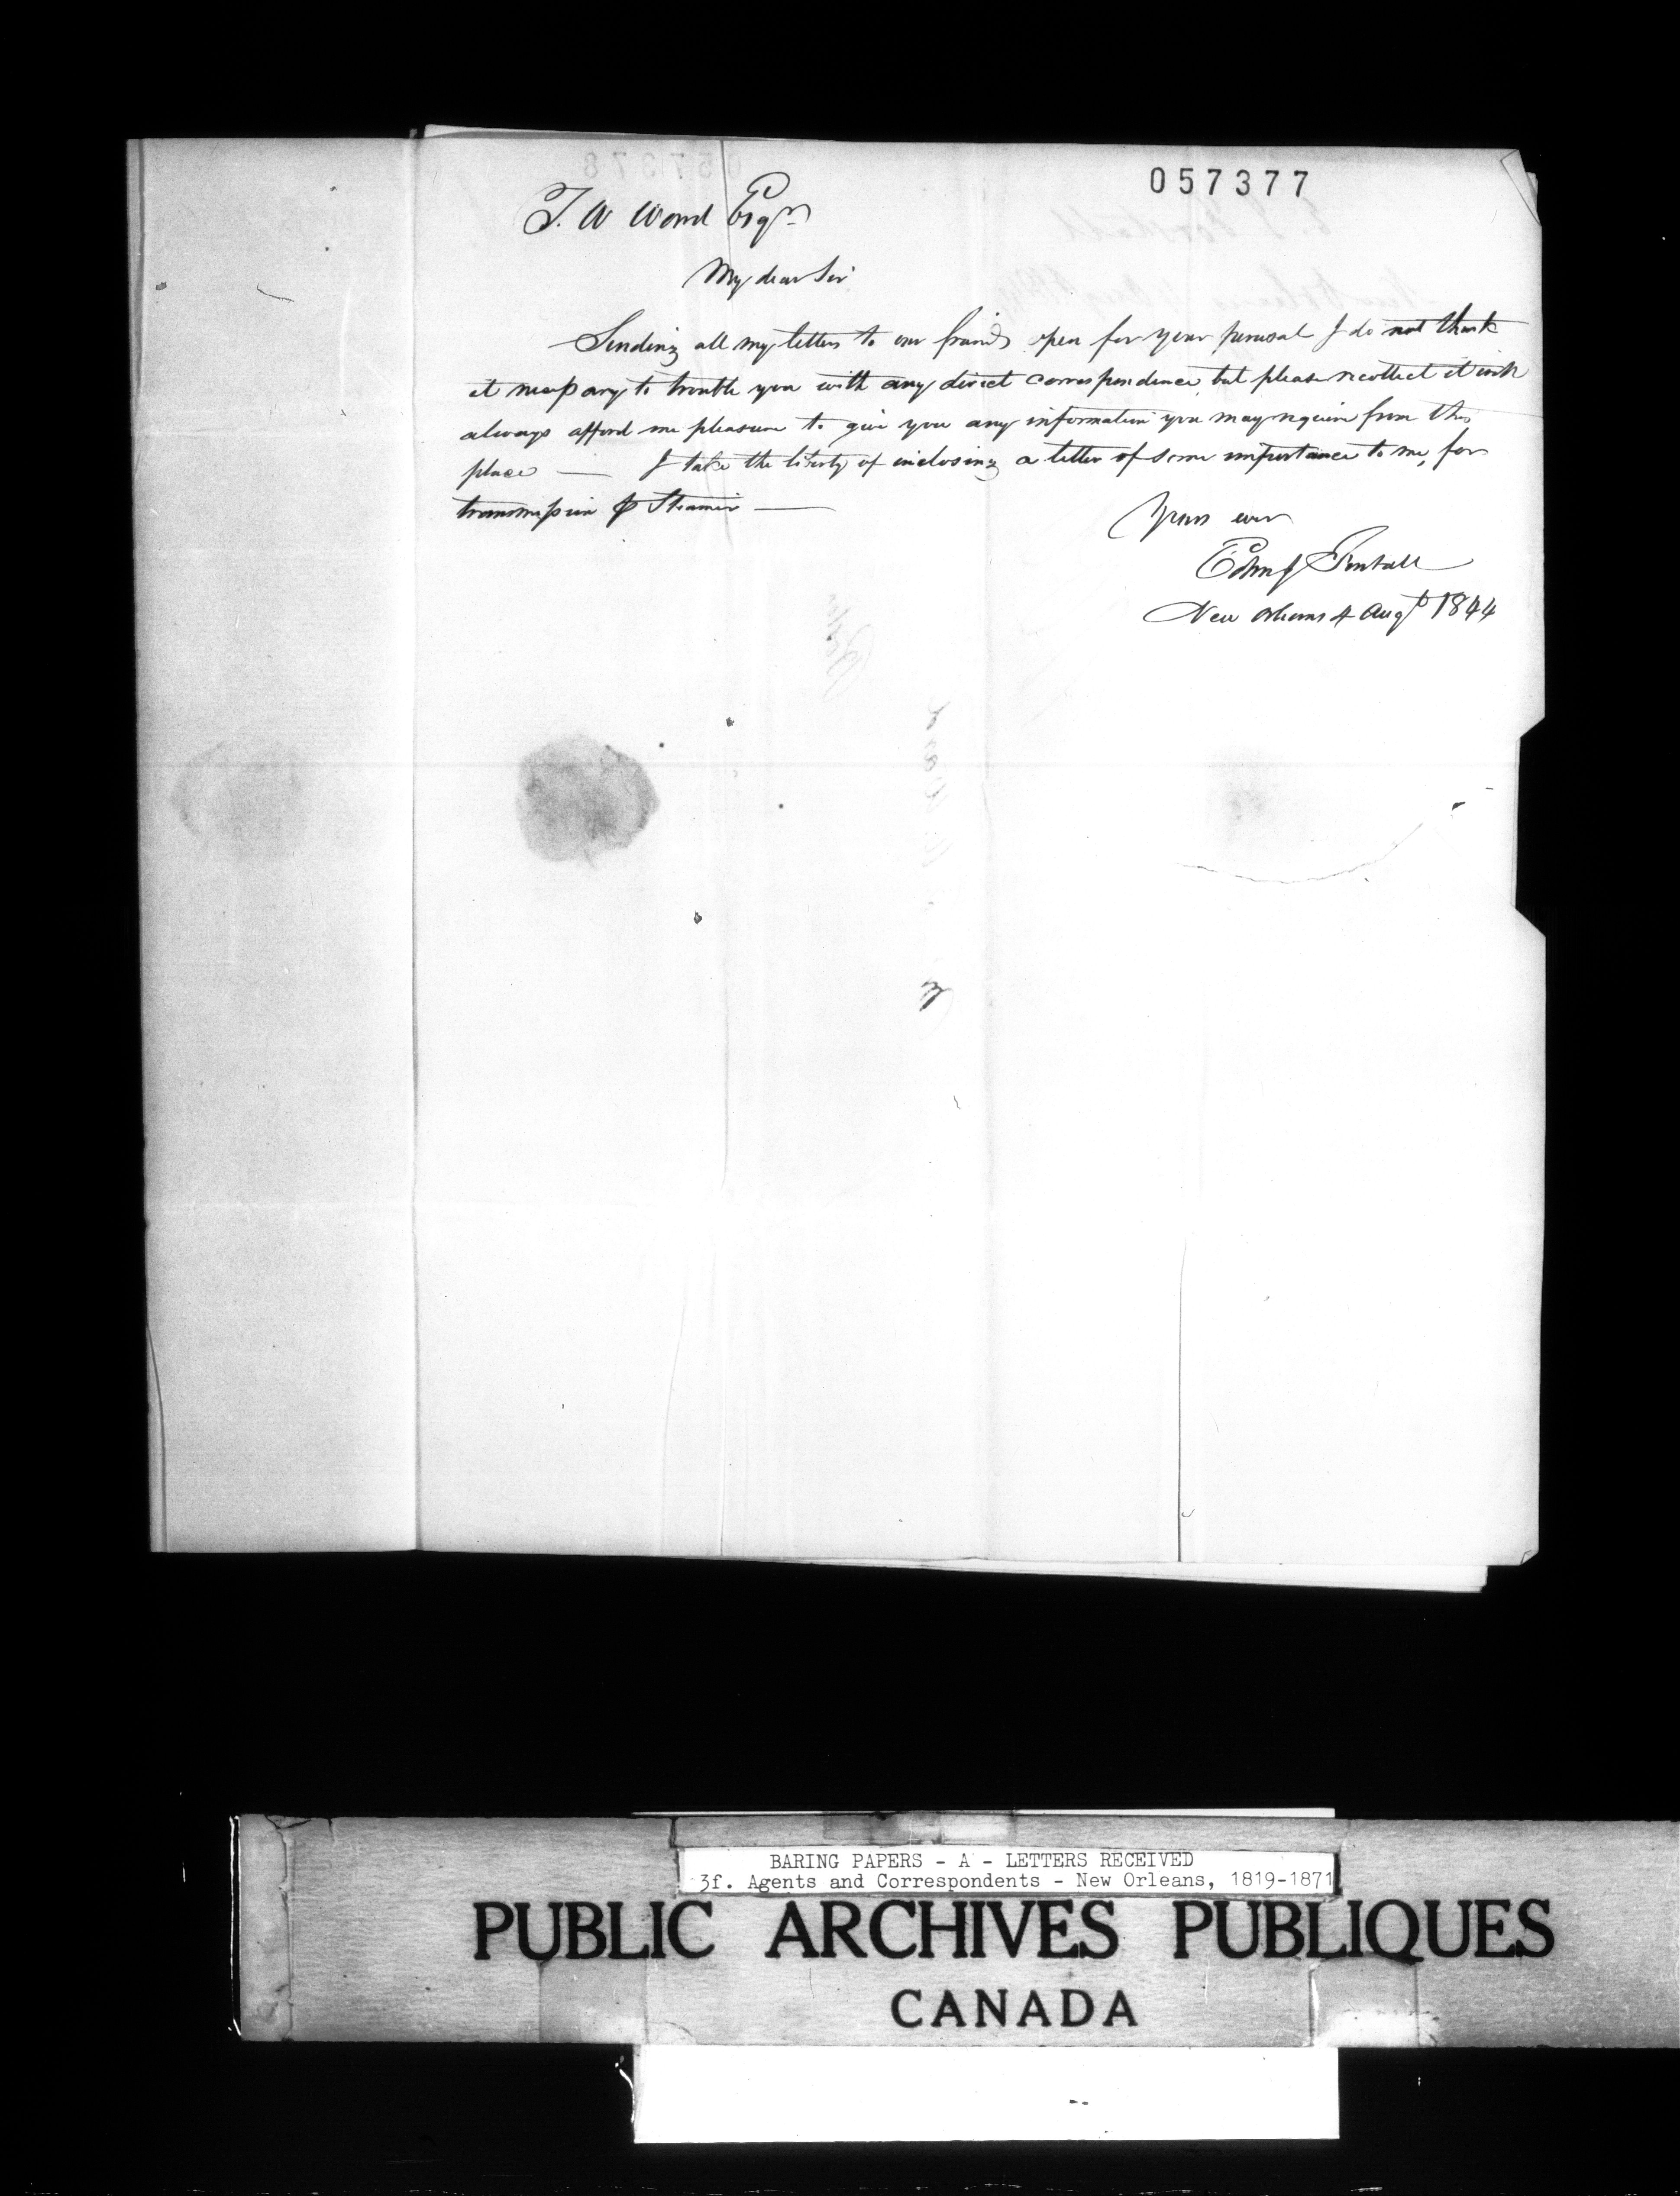 057377
T. W Ward Esqr
My dear Sir
Sending all my letters to our friends open for your perusal I do not think
it necessary to trouble you with any direct correspondence, but please recollect it will
always afford me pleasure to give you any information you may require from this
place — I take the liberty of inclosing a letter of some importance to me, for
transmission ⅌ Steamer —
Yours ever
Edm J Forstall
New Orleans 4 Augt 1844
BARING PAPERS - A - LETTERS RECEIVED
3f. Agents and Correspondents - New Orleans, 1819-1871
PUBLIC ARCHIVES PUBLIQUES
CANADA